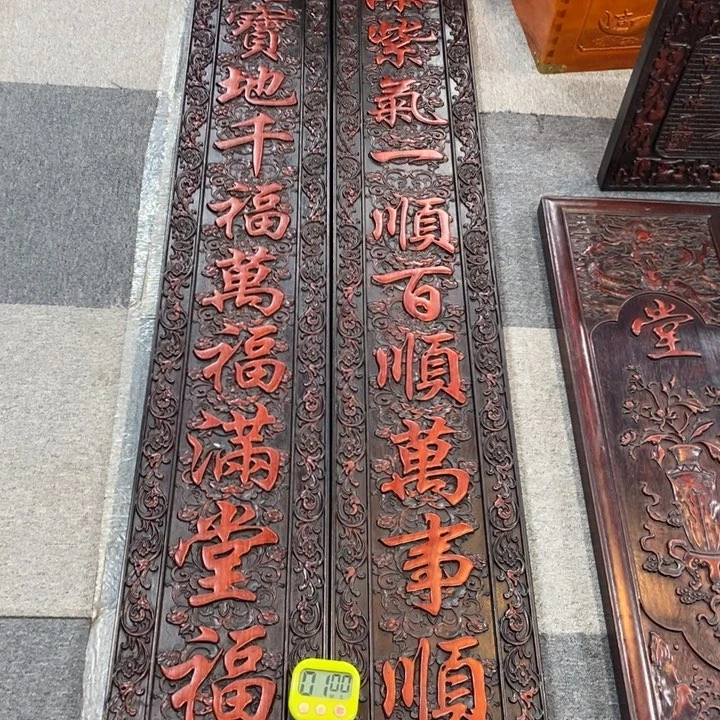 紫氣一順百順萬事順
寶地千福萬福滿堂福
堂
01:00